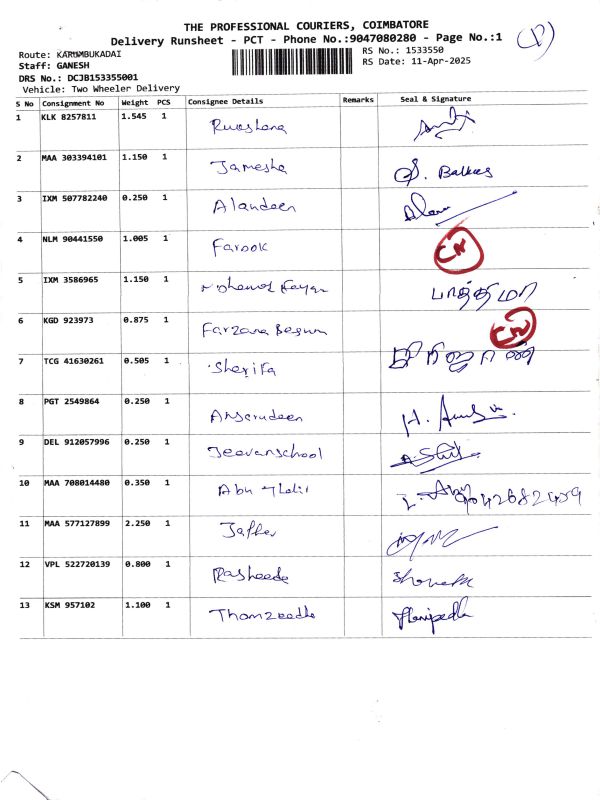 THE PROFESSIONAL COURIERS, COIMBATORE
(P)
Delivery Runsheet - PCT - Phone No.:9047080280 - Page No.:1
Route: KARUMBUKADAI
RS No.: 1533550
Staff: GANESH
RS Date: 11-Apr-2025
DRS No.: DCJB153355001
Vehicle: Two Wheeler Delivery
S No Consignment No Weight PCS Consignee Details Remarks Seal & Signature
1 KLK 8257811 1.545 1
2 MAA 303394101 1.150 1 Jamesha S. Balkees
3 IXM 507782240 0.250 1 Alaudeen
4 NLM 90441550 1.005 1 Farook CN
5 IXM 3586965 1.150 1 பாத்திமா
6 KGD 923973 0.875 1 Farzana Begum CN
7 TCG 41630261 0.505 1 Sherifa
8 PGT 2549864 0.250 1 Ansarudeen
9 DEL 912057996 0.250 1 Jeevanschool
10 MAA 708014480 0.350 1 Abu
11 MAA 577127899 2.250 1 Jaffer
12 VPL 522720139 0.800 1 Rasheeda
13 KSM 957102 1.100 1 Thamzeedha